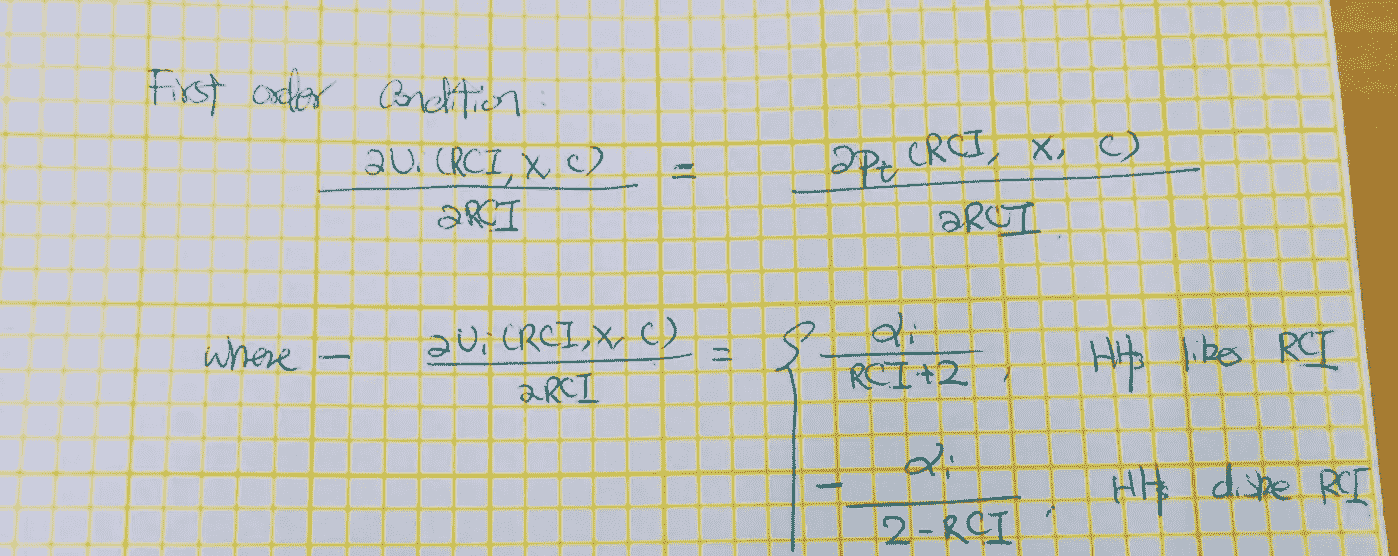 First order Condition :
∂Ui (RCI, X, C) / ∂RCI = ∂pt (RCI, X, C) / ∂RCI
where – ∂Ui (RCI, X, C) / ∂RCI = { αi / RCI+2 , HHs likes RCI
- αi / 2-RCI , HHs dislike RCI